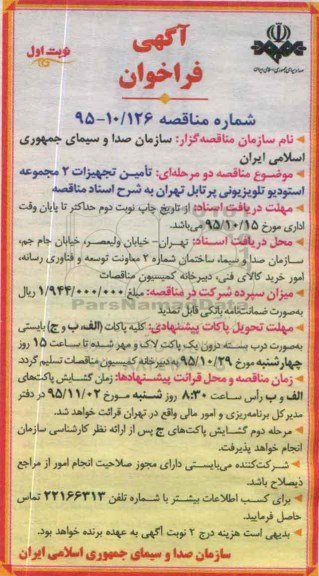 آگهی
نوبت اول
فراخوان
شماره مناقصه ۱۰/۱۲۶-۹۵
نام سازمان مناقصه‌گزار: سازمان صدا و سیمای جمهوری
اسلامی ایران
موضوع مناقصه دو مرحله‌ای: تأمین تجهیزات ۲ مجموعه
استودیو تلویزیونی پرتابل تهران به شرح اسناد مناقصه
مهلت دریافت اسناد: از تاریخ چاپ نوبت دوم حداکثر تا پایان وقت
اداری مورخ ۹۵/۱۰/۱۵ می‌باشد.
محل دریافت اسناد: تهران- خیابان ولیعصر، خیابان جام جم،
سازمان صدا و سیما، ساختمان شماره ۲ معاونت توسعه و فناوری رسانه،
امور خرید کالای فنی، دبیرخانه کمیسیون مناقصات
میزان سپرده شرکت در مناقصه: مبلغ ۱/۹۴۴/۰۰۰/۰۰۰ ریال
به‌صورت ضمانتنامه بانکی قابل تمدید
مهلت تحویل پاکات پیشنهادی: کلیه پاکات (الف، ب و ج) بایستی
به‌صورت درب بسته درون یک پاکت لاک و مهر شده تا ساعت ۱۵ روز
چهارشنبه مورخ ۹۵/۱۰/۲۹ به دبیرخانه کمیسیون مناقصات تسلیم گردد.
زمان مناقصه و محل قرائت پیشنهادها: زمان گشایش پاکت‌های
الف و ب رأس ساعت ۸:۳۰ روز شنبه مورخ ۹۵/۱۱/۰۲ در دفتر
مدیرکل برنامه‌ریزی و امور مالی واقع در تهران قرائت خواهد شد.
مرحله دوم گشایش پاکت‌های ج پس از ارائه نظر کارشناسی سازمان
انجام خواهد پذیرفت.
شرکت‌کننده می‌بایستی دارای مجوز صلاحیت انجام امور از مراجع
ذیصلاح باشد.
برای کسب اطلاعات بیشتر با شماره تلفن ۲۲۱۶۶۳۱۳ تماس
حاصل فرمایید.
بدیهی است هزینه درج ۲ نوبت آگهی به عهده برنده خواهد بود.
سازمان صدا و سیمای جمهوری اسلامی ایران